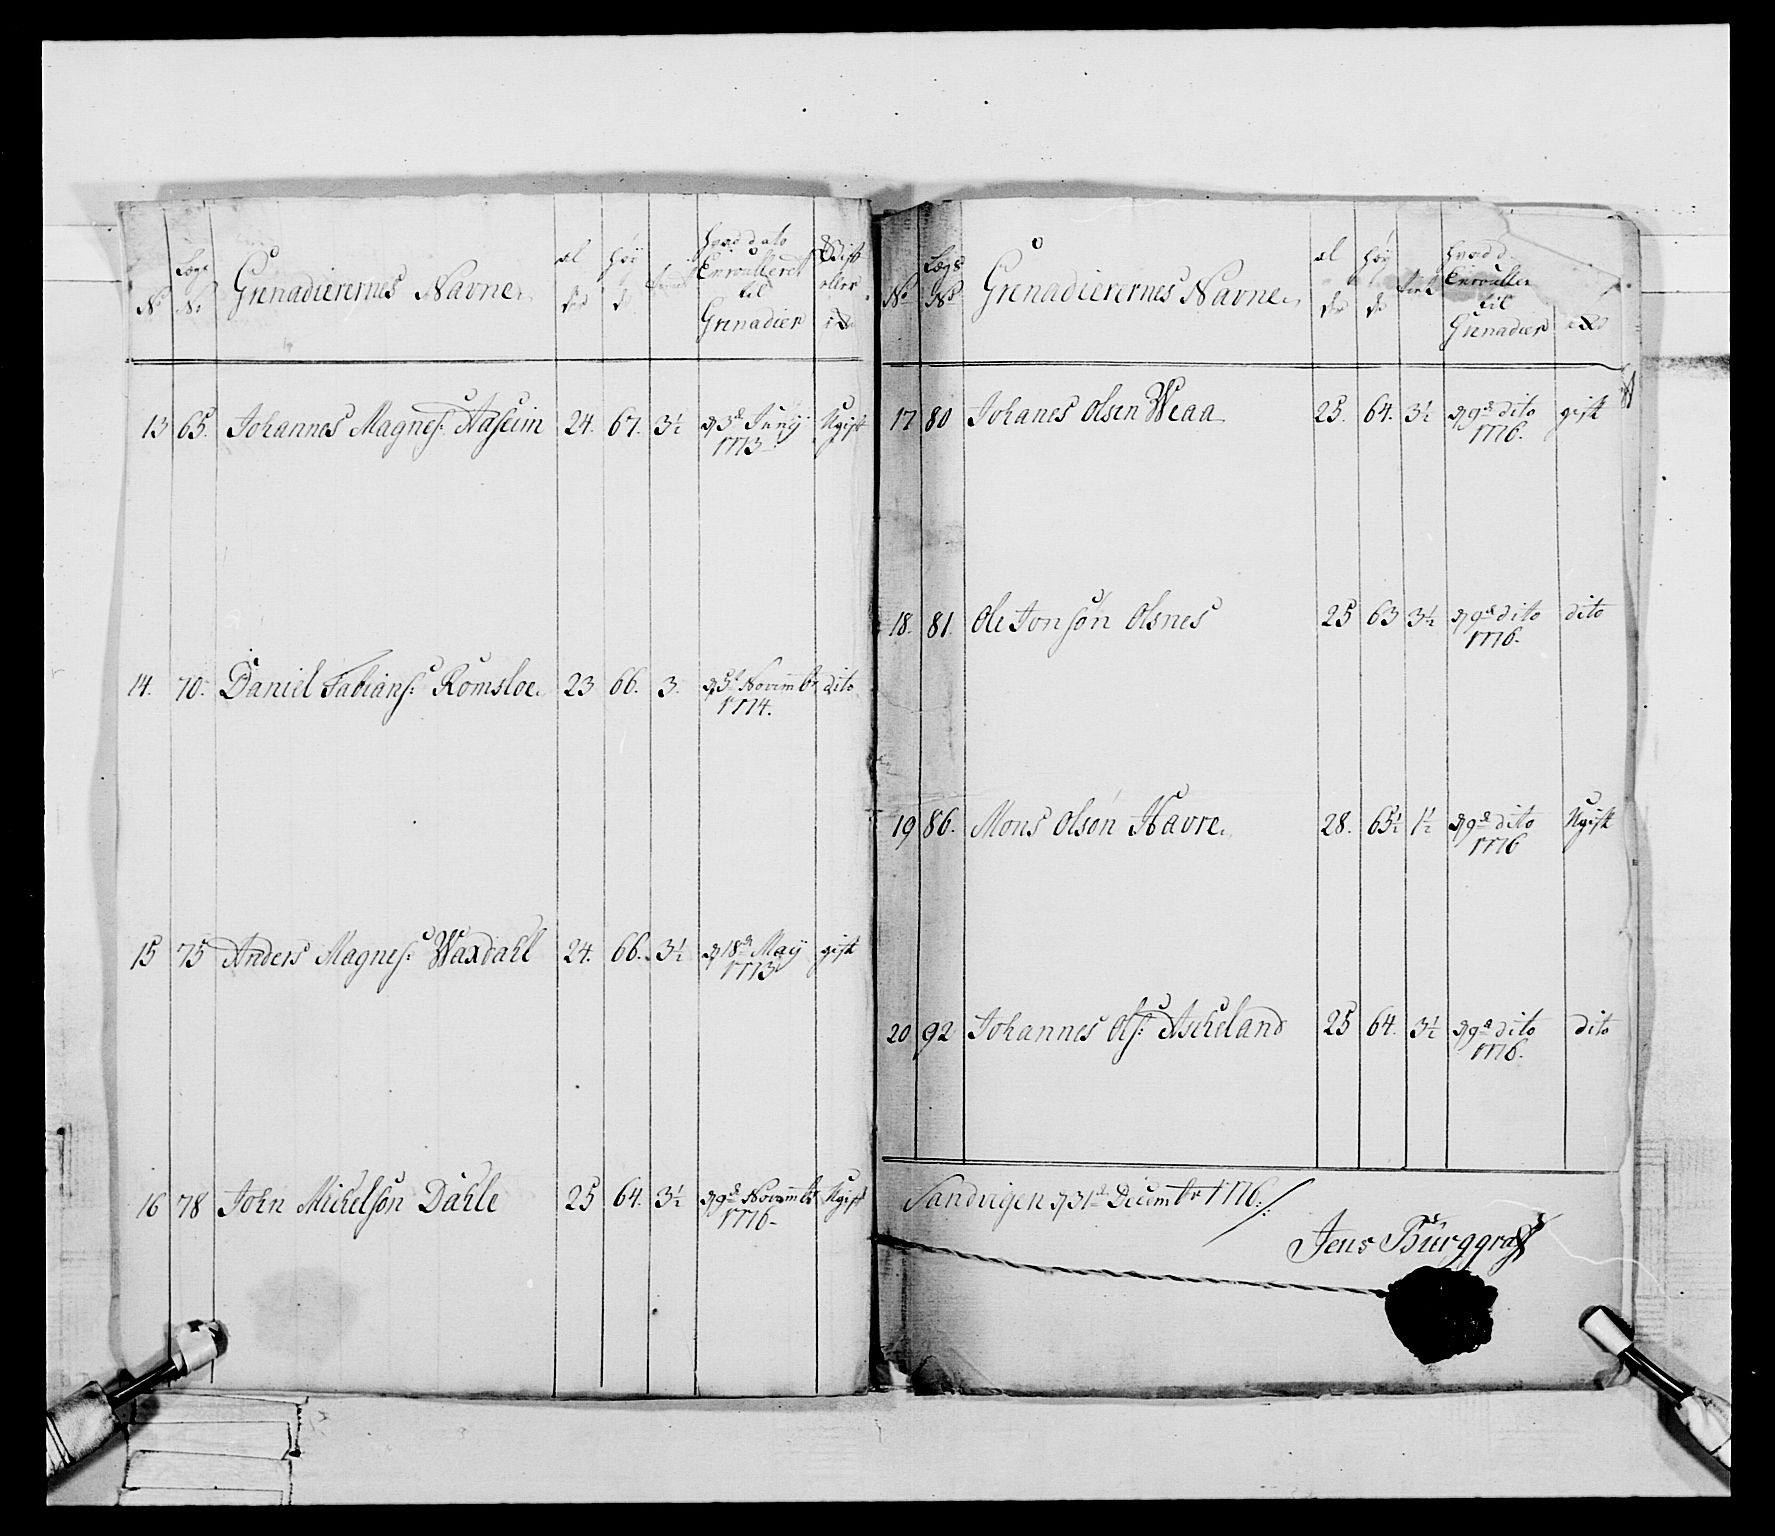 No Lægs No Grenadierernes Navne æl der høy de hvad dato Enroulleret til Grenadier Gift eller ei
13 65. Johannes Magnes: Aaseim 24. 67. 3½ d 3d Juny 1773 Ugift
14. 70. Daniel Fabians: Romsloe 23 66. 3. d 5t Novembr 1774. dito
15 75 Anders Magnes: Waxdahl 24. 66. 3½ d 18d May 1773 gift
16 78 John Michelsøn Dahle 25 64. 3½ d 9d Novembr 1776 Ugift
No Lægs No Grenadierernes Navne æl der høy de hvad d Enrouller til Grenadier
17 80 Johanes Olsen Weaa 25. 64. 3½ d 9d dito 1776. gift
18. 81. Ole Jonsøn Olsnes 25 63 3½ d 9d dito 1776. dito
19 86. Mons Olsøn Havre 28. 65½ 1½ d 9d dito 1776 Ugift
20 92 Johannes Ols: Askeland 25 64. 3½ d 9d dito 1776. dito
Sandvigen d 31d Decembr 1776.
Jens Bürggraff